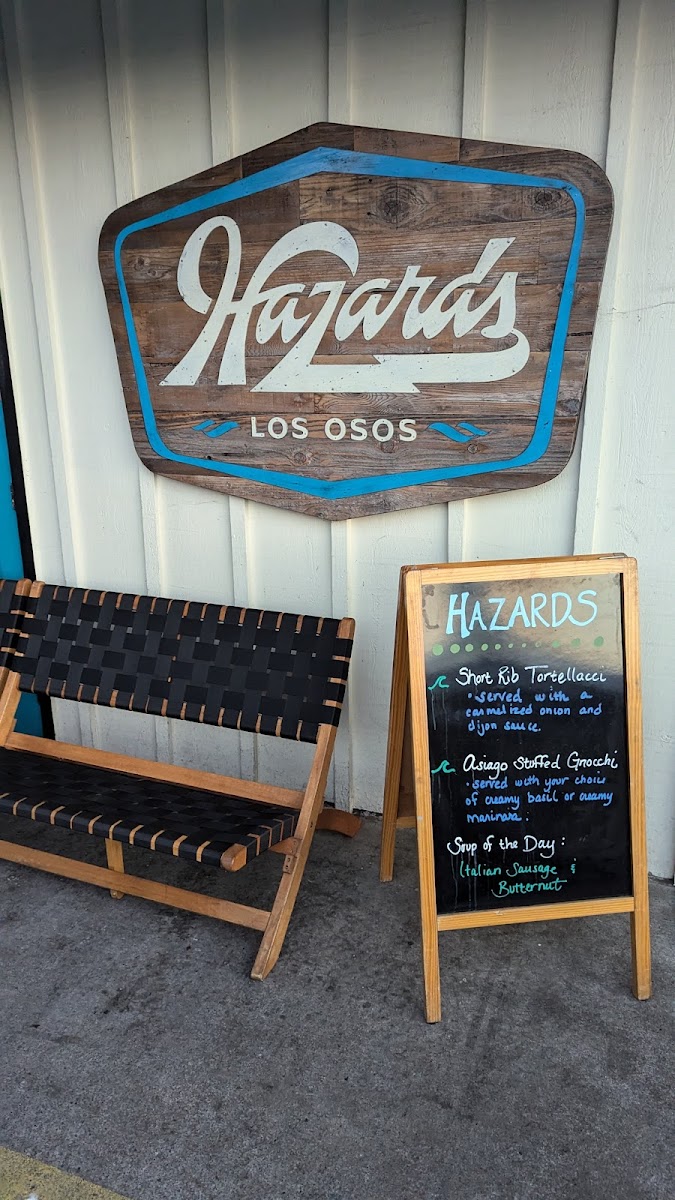 Hazards
LOS OSOS
HAZARDS
Short Rib Tortellacci
• served with a
carmelized onion and
dijon sauce.
Asiago Stuffed Gnocchi
• served with your choice
of creamy basil or creamy
marinara.
Soup of the Day:
Italian Sausage &
Butternut